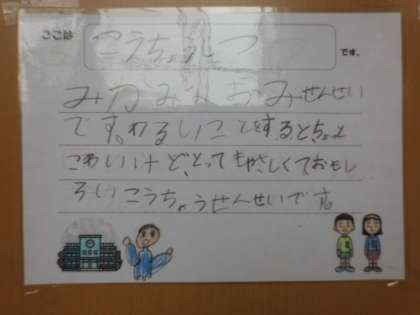 ここは こうちょうしつ です。
みかみ おみせんせい
です。わるいことをするとちょと
こわいけど、とってもやさしくておもし
ろいこうちょうせんせいです。